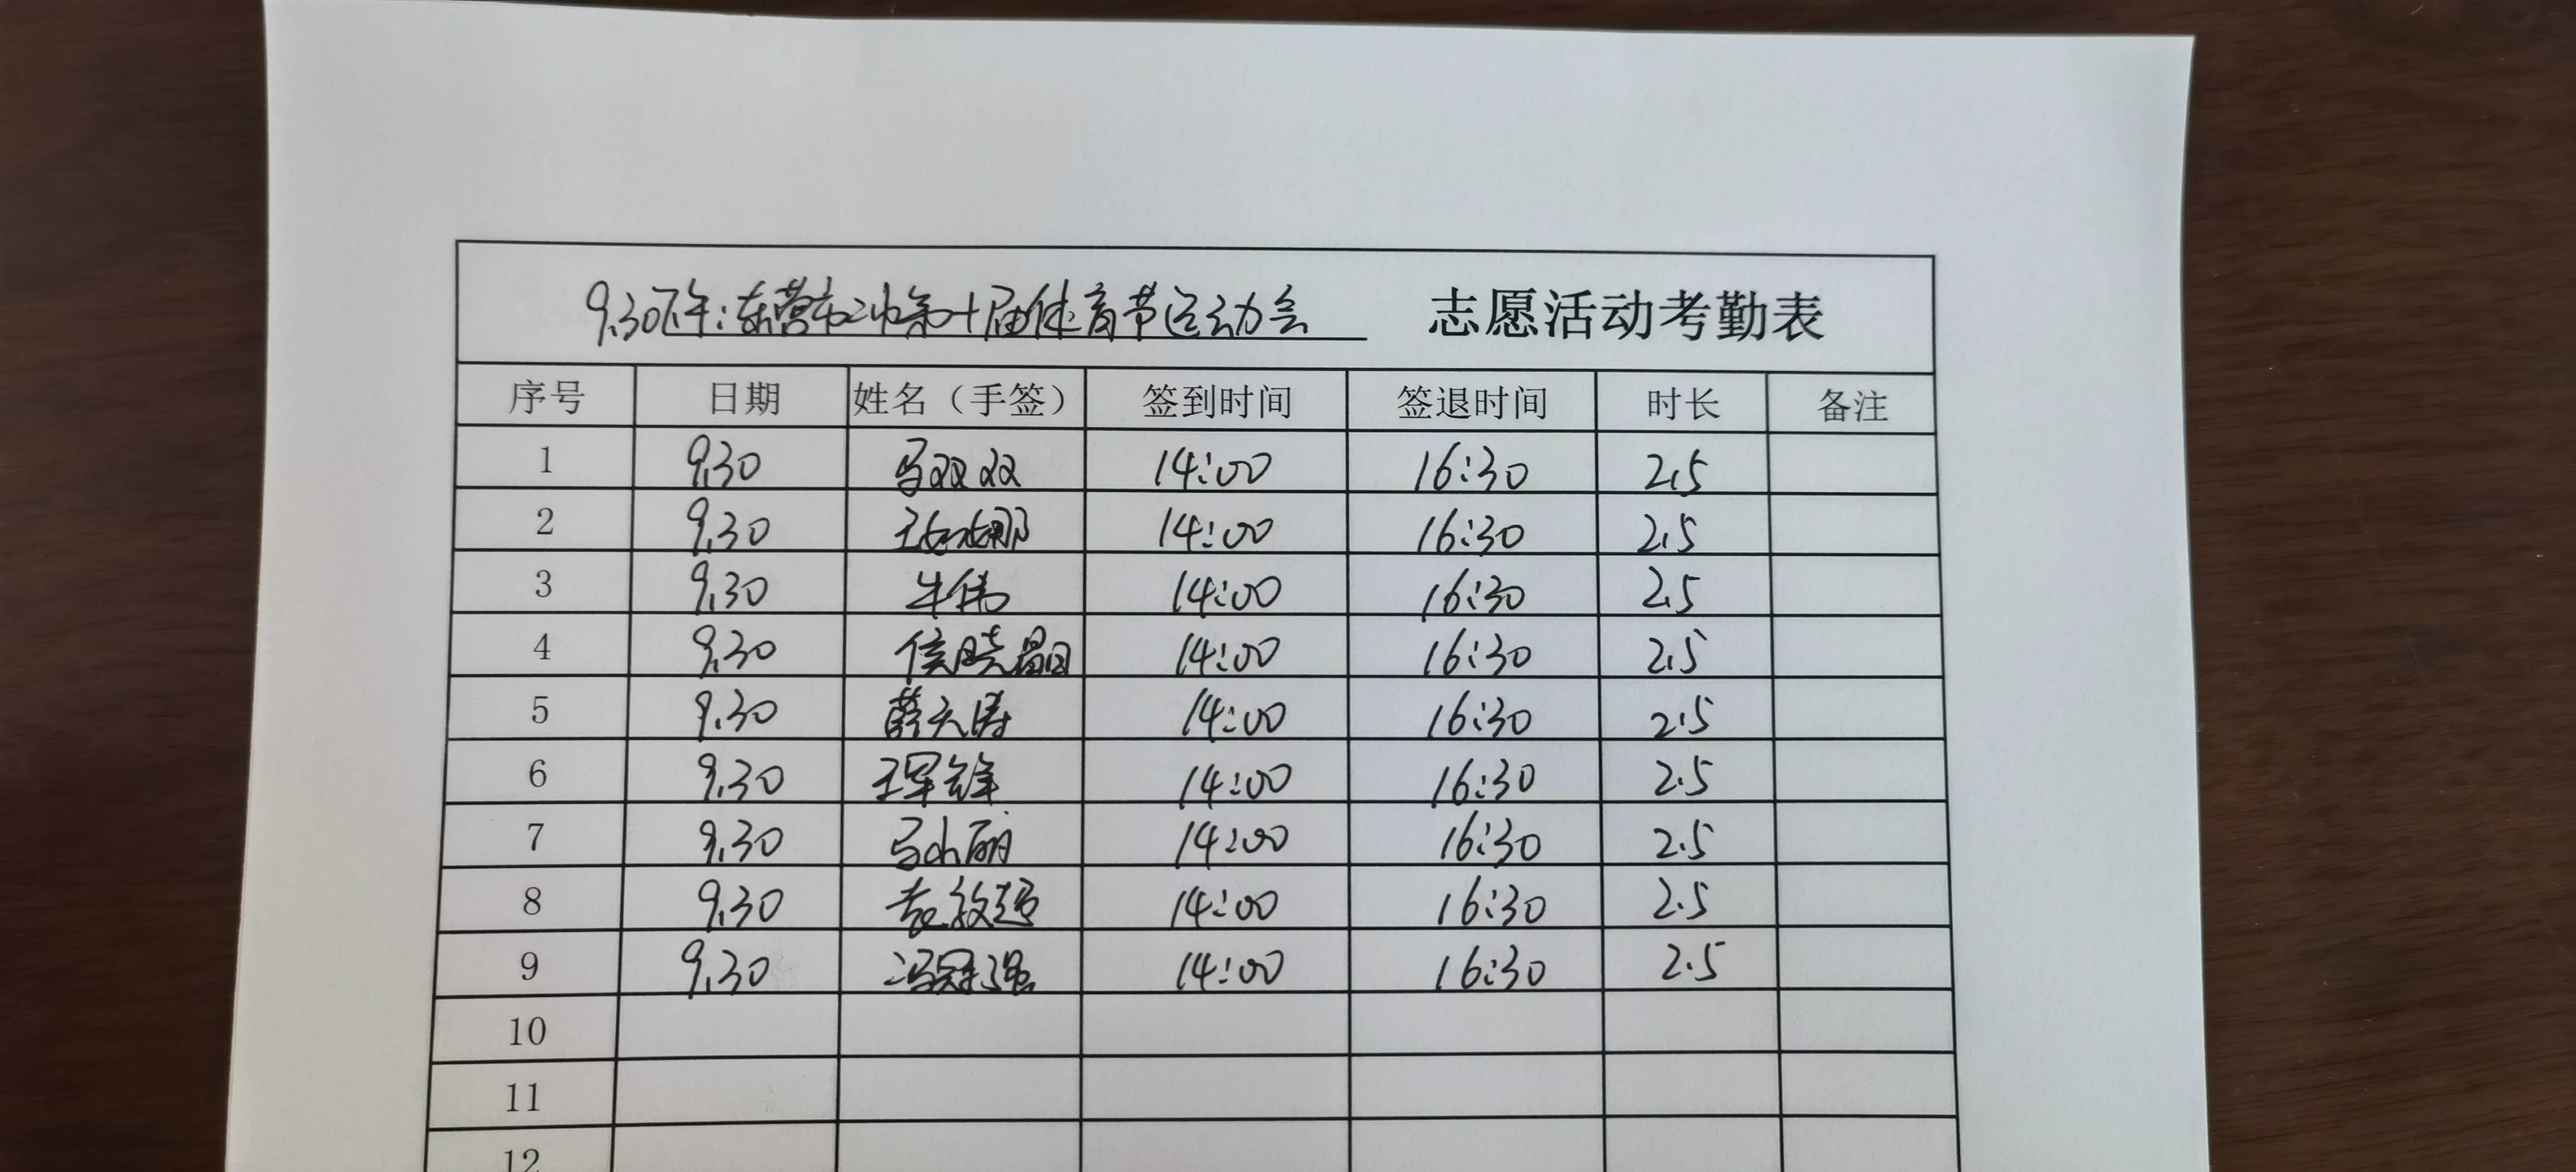 9.30下午:东营市二中第十届体育节运动会 志愿活动考勤表
序号 日期 姓名（手签） 签到时间 签退时间 时长 备注
1 9.30 马双双 14:00 16:30 2.5
2 9.30 王娜娜 14:00 16:30 2.5
3 9.30 牛伟 14:00 16:30 2.5
4 9.30 侯晓晶 14:00 16:30 2.5
5 9.30 薛天涛 14:00 16:30 2.5
6 9.30 王军锋 14:00 16:30 2.5
7 9.30 马小丽 14:00 16:30 2.5
8 9.30 袁 14:00 16:30 2.5
9 9.30 冯冠强 14:00 16:30 2.5
10
11
12